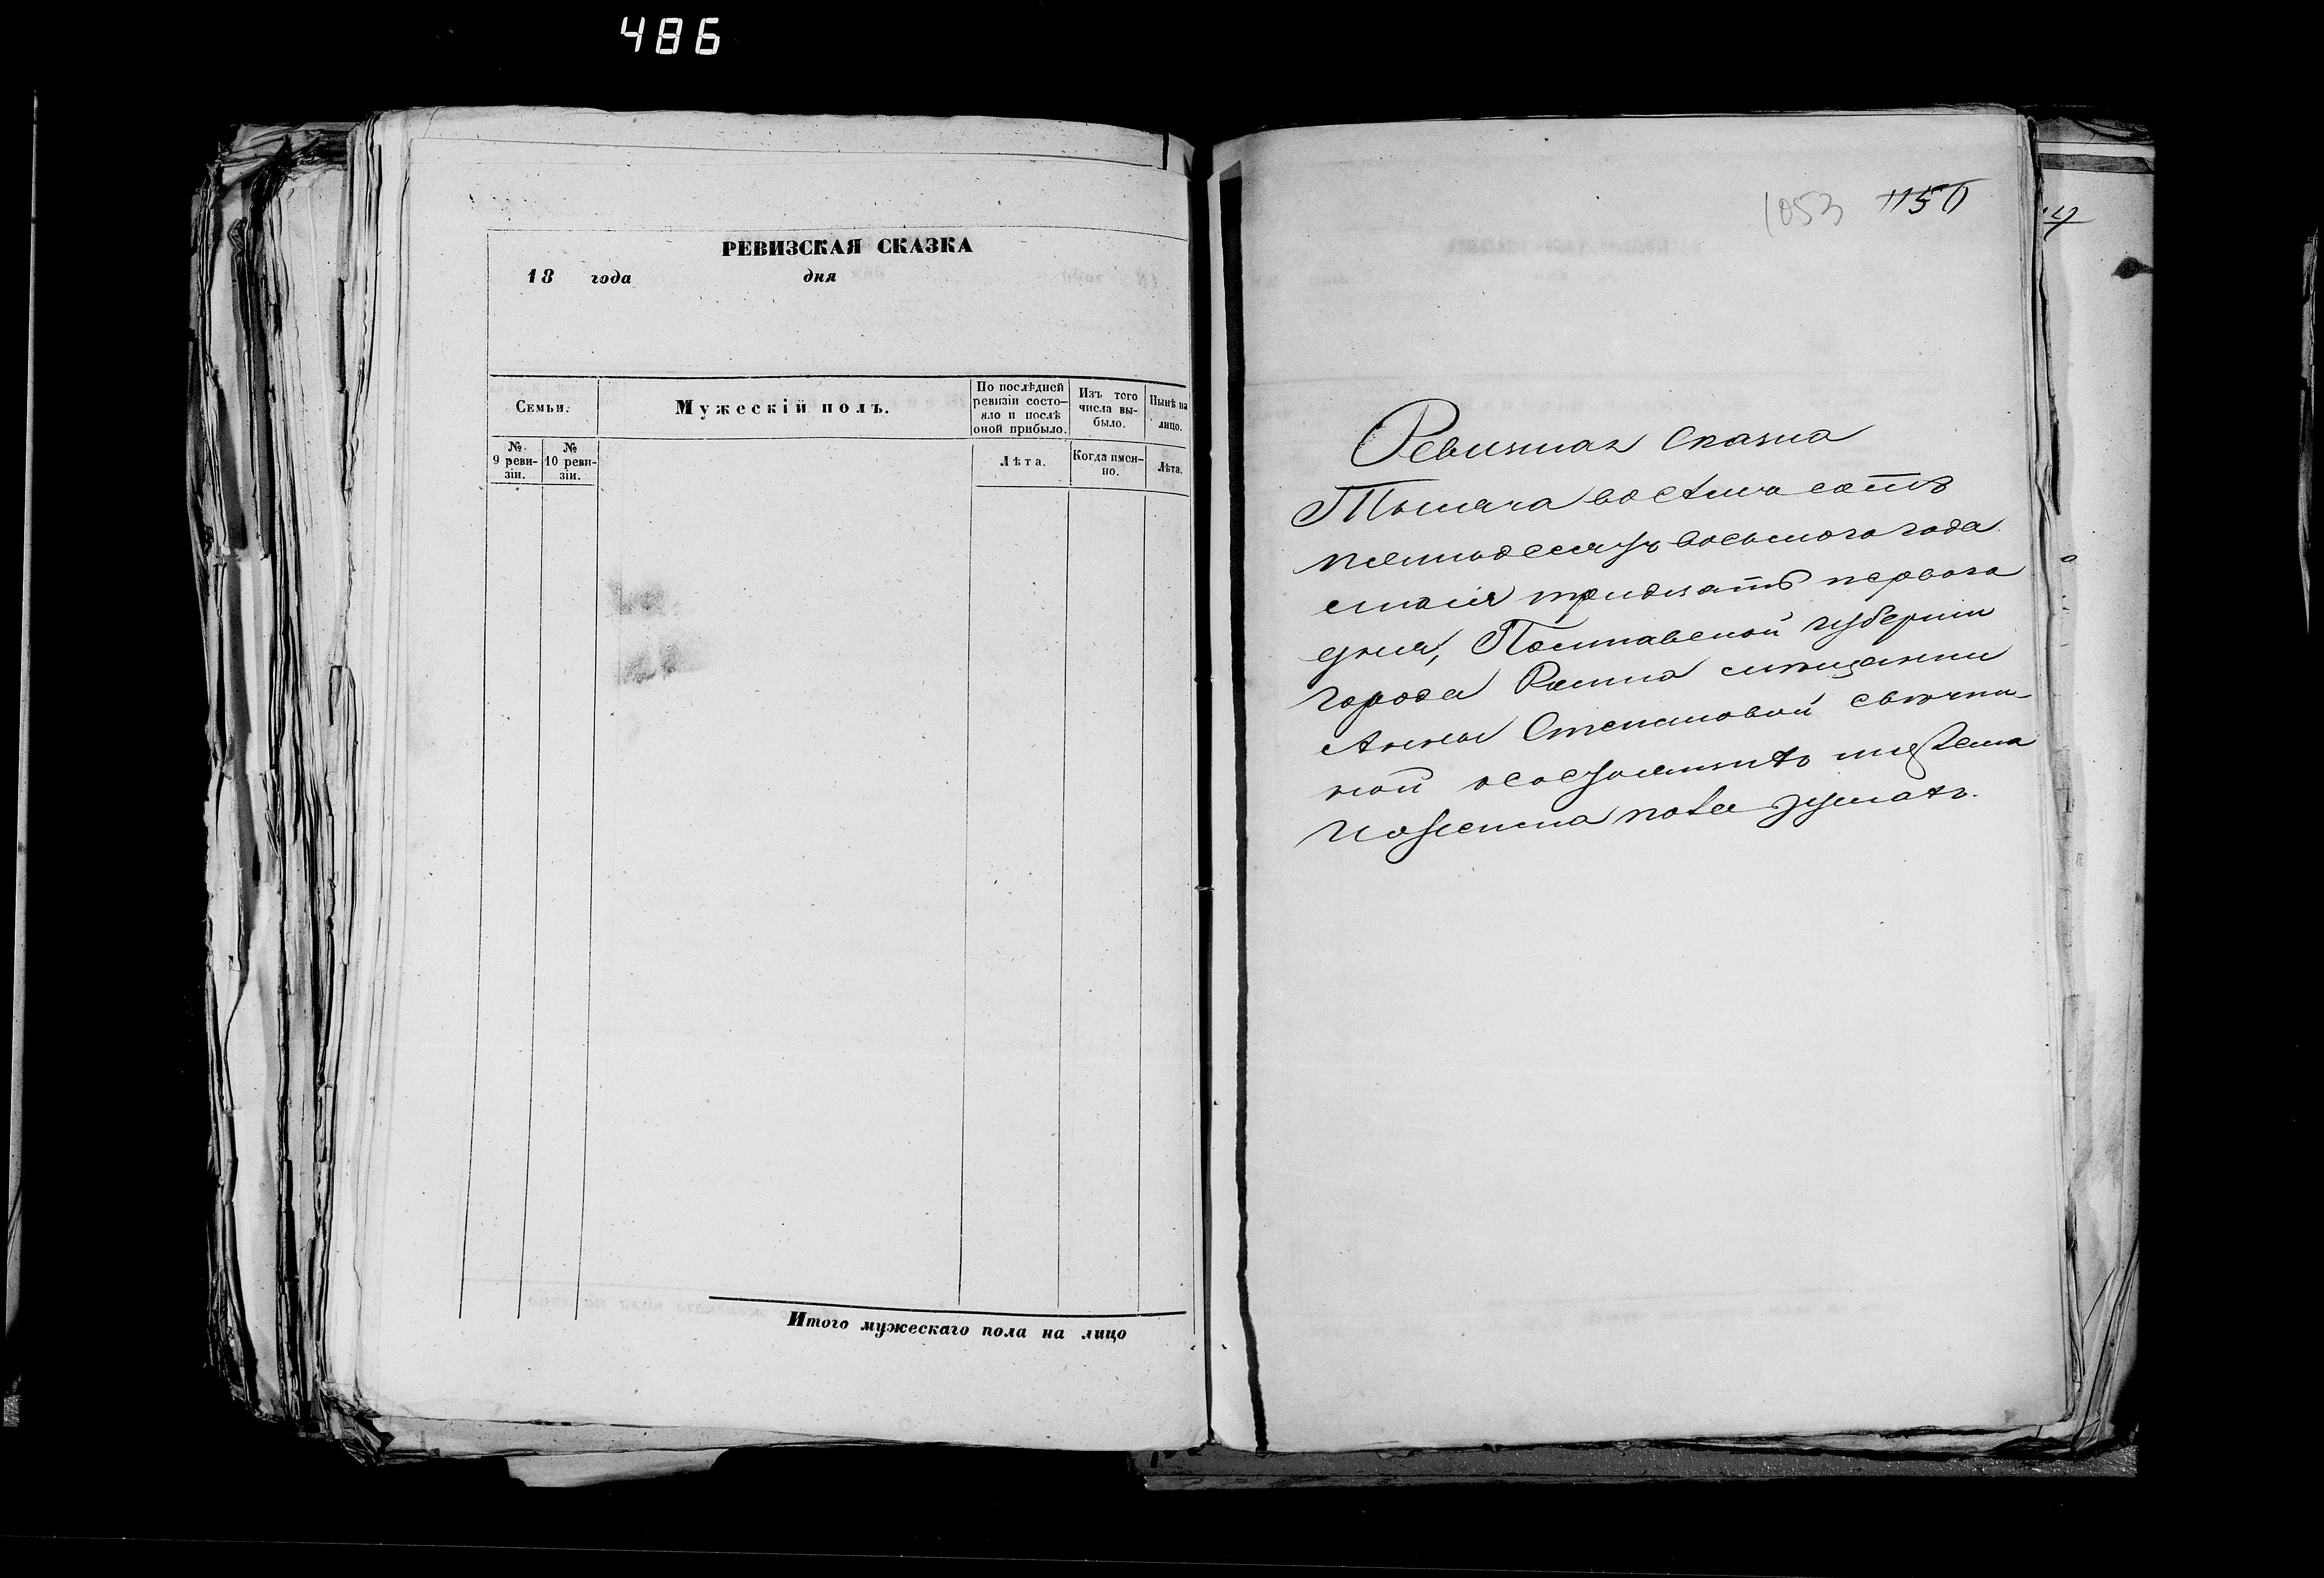 486
РЕВИЗСКАЯ СКАЗКА
18 года дня
Семьи.
Мужескій полъ.
По послѣдней ревизіи состо-
яло и послѣ оной прибыло.
Изъ того числа вы-
было.
Нынѣ на лицо.
№ 9 реви-
зіи.
№ 10 реви-
зіи.
Лѣта.
Когда имен-
но.
Лѣта.
Итого мужескаго пола на лицо
1053 1150
Ревизкая Сказка
Тысяча восемь сотъ
пятьдесятъ восьмого года
маія тридцать первого
дня, Полтавской губерніи
города Ромна мѣщанки
Анны Степановой
пола душахъ.